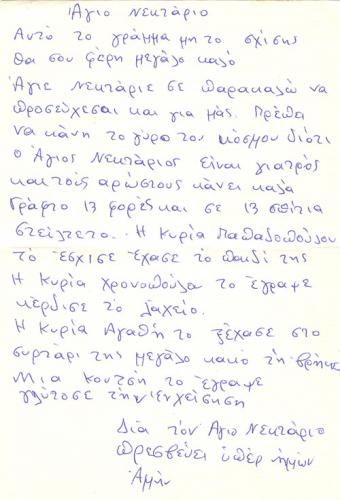 Άγιο Νεκτάριο
Αυτό το γράμμα μη το σχίσης
θα σου φέρη μεγάλο καλό
Άγιε Νεκτάριε σε παρακαλώ να
προσεύχεσαι και για μάς. Πρέπει
να κάνη το γύρο τον κόσμου διότι
ο Άγιος Νεκτάριος είναι γιατρός
και τούς αρώστους κάνει καλά
Γράφτο 13 φορές και σε 13 σπίτια
στείλετο. Η Κυρία Παπαδοπούλου
το έσχισε έχασε το παιδί της
Η Κυρία Χρονοπούλα το έγραψε
κέρδισε το λαχείο.
Η Κυρία Αγαθή το ξέχασε στο
συρτάρι της μεγάλο κακό τη βρήκε
Μια κουτσή το έγραψε
γλύτοσε την ενχείσηση
Διά τον Άγιο Νεκτάριο
πρεσβεύει υπέρ ημών
Αμήν